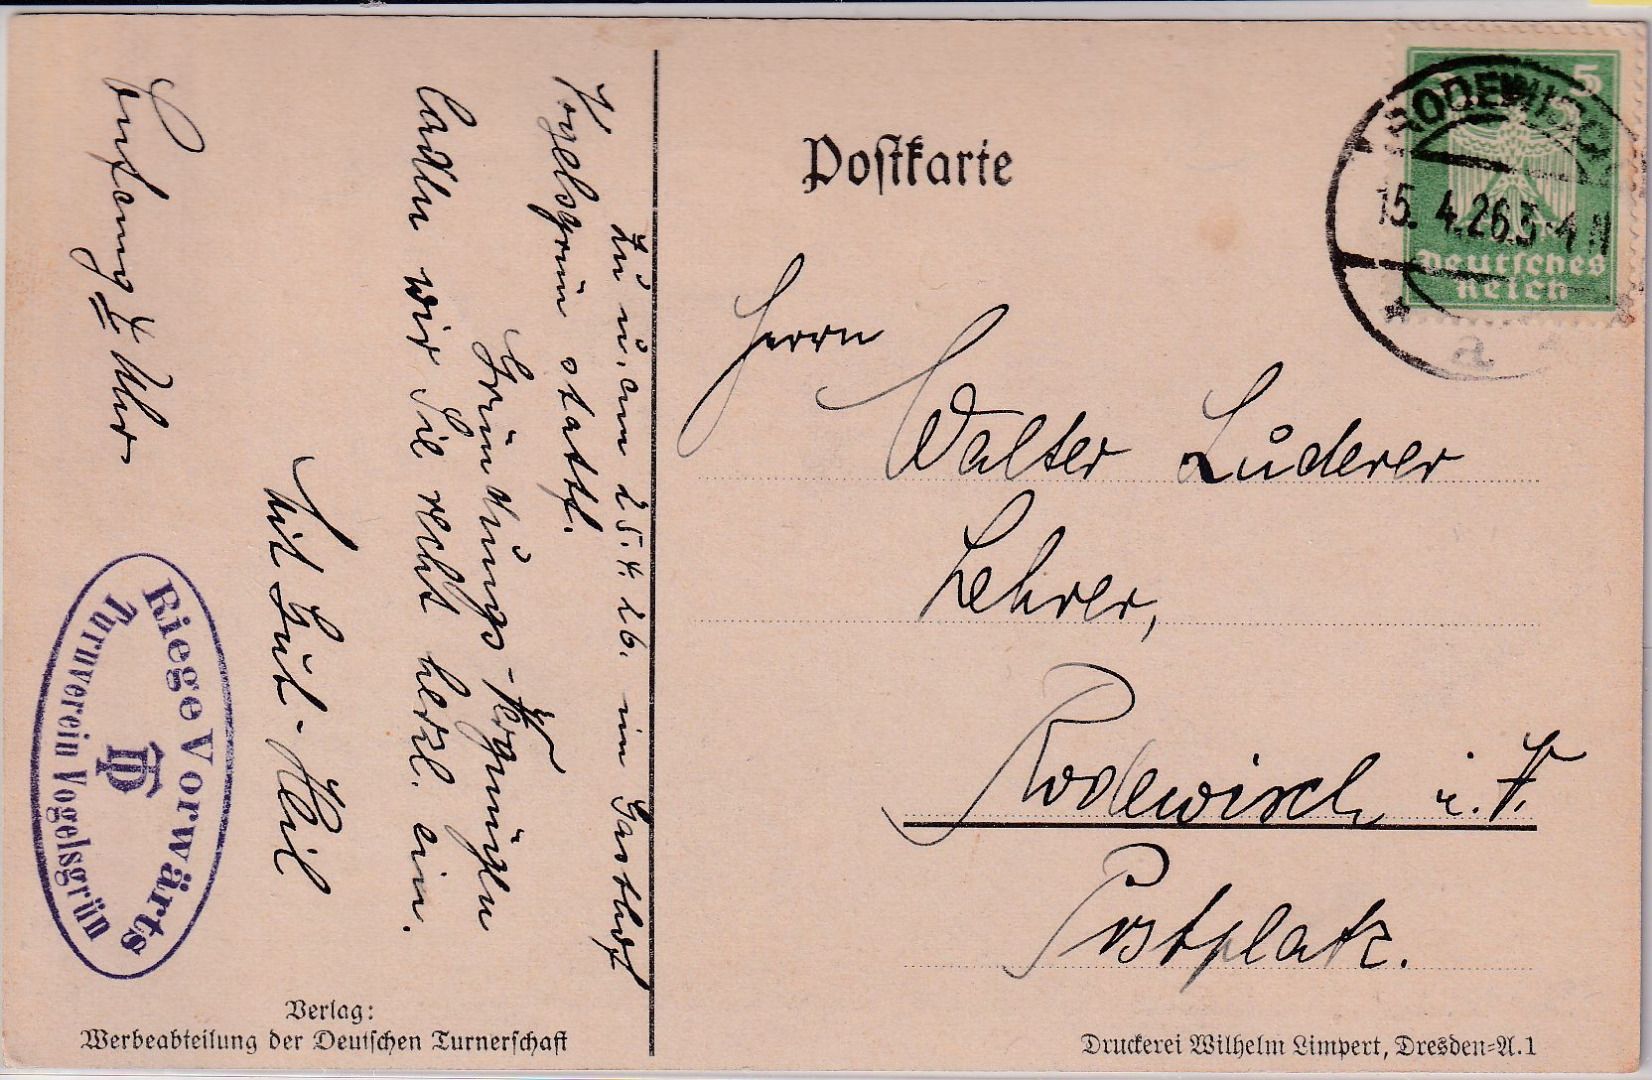 Postkarte
5
RODEWISCH
15. 4. 26. 3-4 N
Deutsches
Reich
a
Herrn
Walter Luderer
Lehrer,
Rodewisch i. V.
Postplatz.
Zu u. am 25.4.26. im Gasthof
Vogelsgrün statt.
Gründungs-Vergnügen
laden wir Sie recht herzl. ein.
Mit Gut-Heil
Anfang Uhr
Riege Vorwärts
DT
Turnverein Vogelsgrün
Verlag:
Werbeabteilung der Deutschen Turnerschaft
Druckerei Wilhelm Limpert, Dresden-A. 1